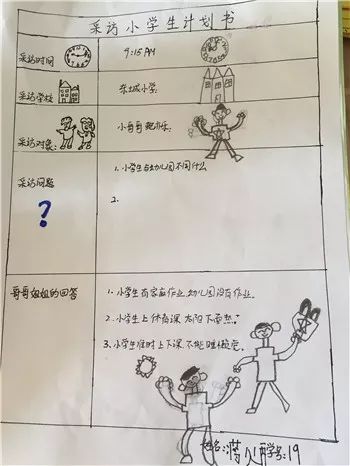 采访小学生计划书
采访时间 9:15AM
采访学校 小学
采访对象: 小哥哥
采访问题 1.小学生与幼儿园不同什么
?
2.
哥哥姐姐的回答 1.小学生有家庭作业,幼儿园没有作业。
2.小学生上体育课太阳下
3.小学生准时上下课不能睡懒觉。
姓名: 学号:19